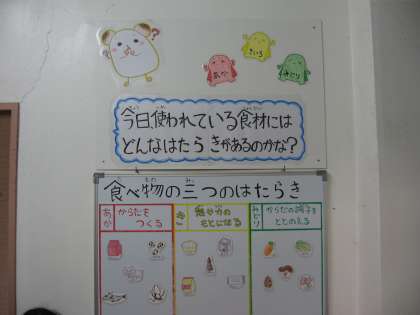 ?
あか
きいろ
みどり
今日、使われている食材には
どんなはたらきがあるのかな?
食べ物の三つのはたらき
あか
からだを
つくる
き
熱や力の
もとになる
みどり
からだの調子を
ととのえる